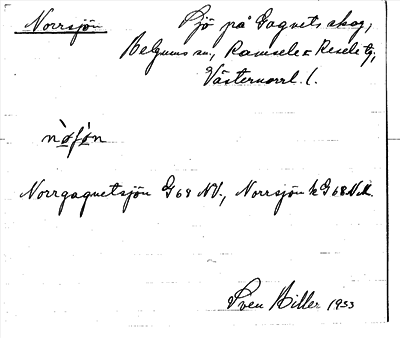 Norrsjön
Sjö på Gagnets skog,
Helgums sn, Ramsele o Resele tg,
Västernorrl. l.
Norrgagnetsjön G 68 NV., Norrsjön k G 68 NV.
Sven Hiller 1933